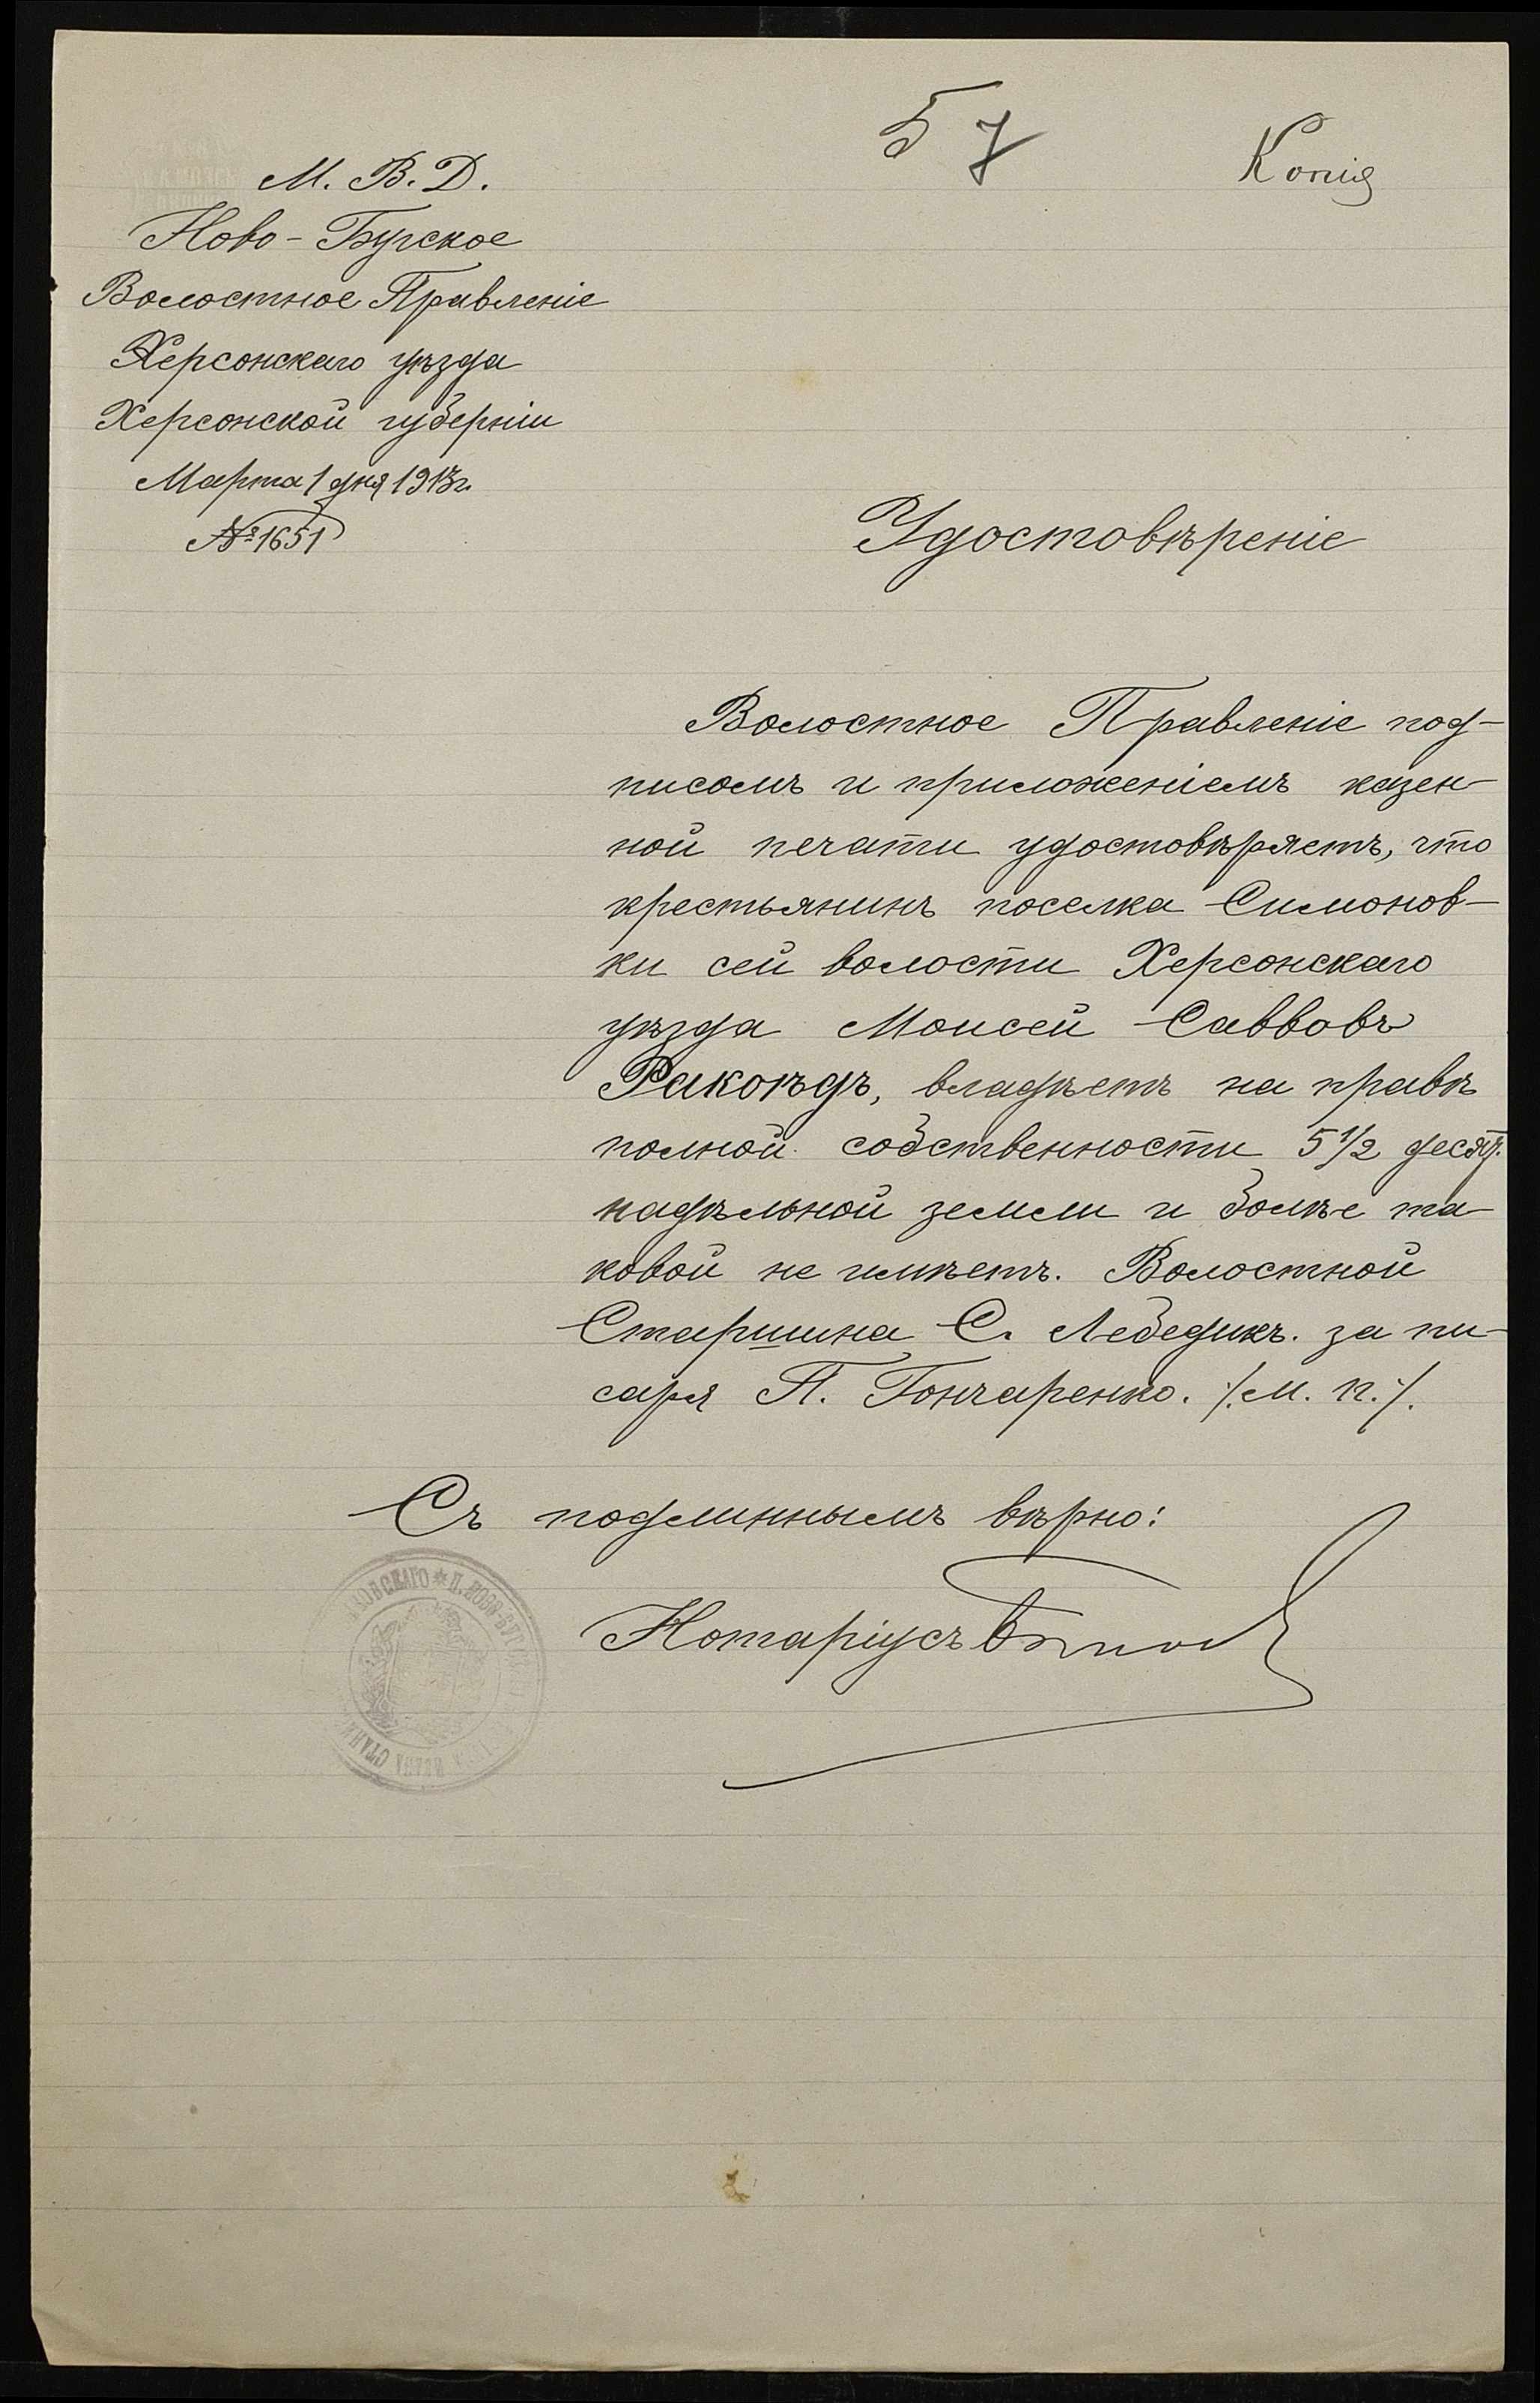 5 7
Копія
М. В. Д.
Ново-Бугское
Волостное Правленіе
Херсонскаго уѣзда
Херсонской губерніи
Марта 1 дня 1913 г.
№ 1651
Удостовѣреніе
Волостное Правленіе под-
писомъ и приложеніемъ казен-
ной печати удостовѣряетъ, что
крестьянинъ поселка Симонов-
ки сей волости Херсонскаго
уѣзда Моисей Саввовъ
Ракоѣдъ, владѣетъ на правѣ
полной собственности 5 1/2 десят.
надѣльной земли и болѣе та-
ковой не имѣетъ. Волостной
Старшина С. Лебедикъ. за пи-
саря П. Гончаренко. /. М. П. /.
Съ подлиннымъ вѣрно:
Нотаріусъ